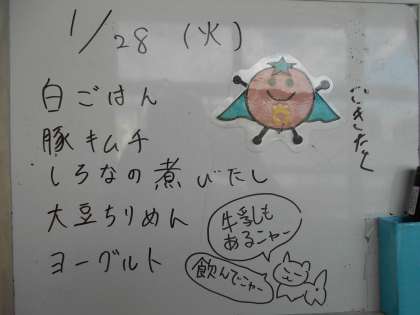 1/28 (火)
白ごはん
豚キムチ
しろなの煮びたし
大豆ちりめん
ヨーグルト
牛乳も
あるニャー
飲んでニャー